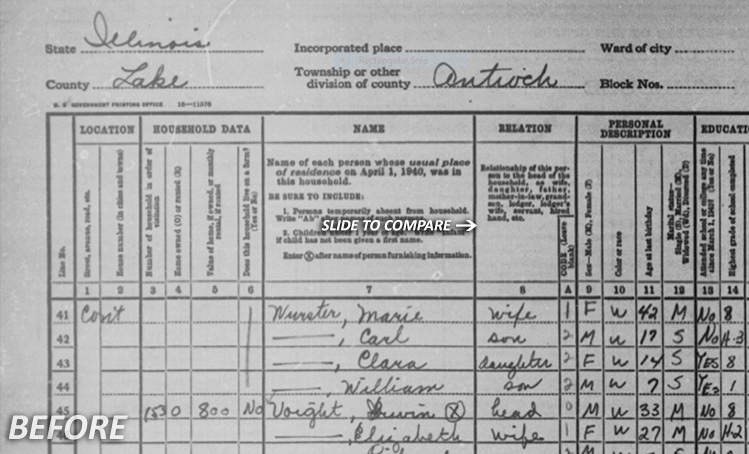 State Illinois Incorporated place Ward of city
County Lake Township or other division of county Antioch Block Nos.
U. S. GOVERNMENT PRINTING OFFICE 16—11576
LOCATION HOUSEHOLD DATA NAME RELATION PERSONAL DESCRIPTION EDUCATI
Line No.
Street, avenue, road, etc.
House number (in cities and towns)
Number of household in order of visitation
Home owned (O) or rented (R)
Value of home, if owned, or monthly rental, if rented
Does this household live on a farm? (Yes or No)
Name of each person whose usual place
of residence on April 1, 1940, was in
this household.
BE SURE TO INCLUDE:
1. Persons temporarily absent from household.
Write "Ab"
SLIDE TO COMPARE →
2. Children
if child has not been given a first name.
Enter Ⓧ after name of person furnishing information.
Relationship of this person to the head of the household, as wife, daughter, father, mother-in-law, grandson, lodger, lodger's wife, servant, hired hand, etc.
CODE (Leave blank)
Sex—Male (M), Female (F)
Color or race
Age at last birthday
Marital status—Single (S), Married (M), Widowed (Wd), Divorced (D)
Attended school or college any time since March 1, 1940? (Yes or No)
Highest grade of school completed
1 2 3 4 5 6 7 8 A 9 10 11 12 13 14
41 Cont Wurster, Marie wife 1 F W 42 M No 8
42 ———, Carl son 2 M W 17 S No H-3
43 ———, Clara daughter 2 F W 14 S Yes 8
44 ———, William son 2 M W 7 S Yes 1
45 153 O 800 No Voight, Irwin Ⓧ head 0 M W 33 M No 8
———, Elizabeth wife 1 F W 27 M No H-2
BEFORE